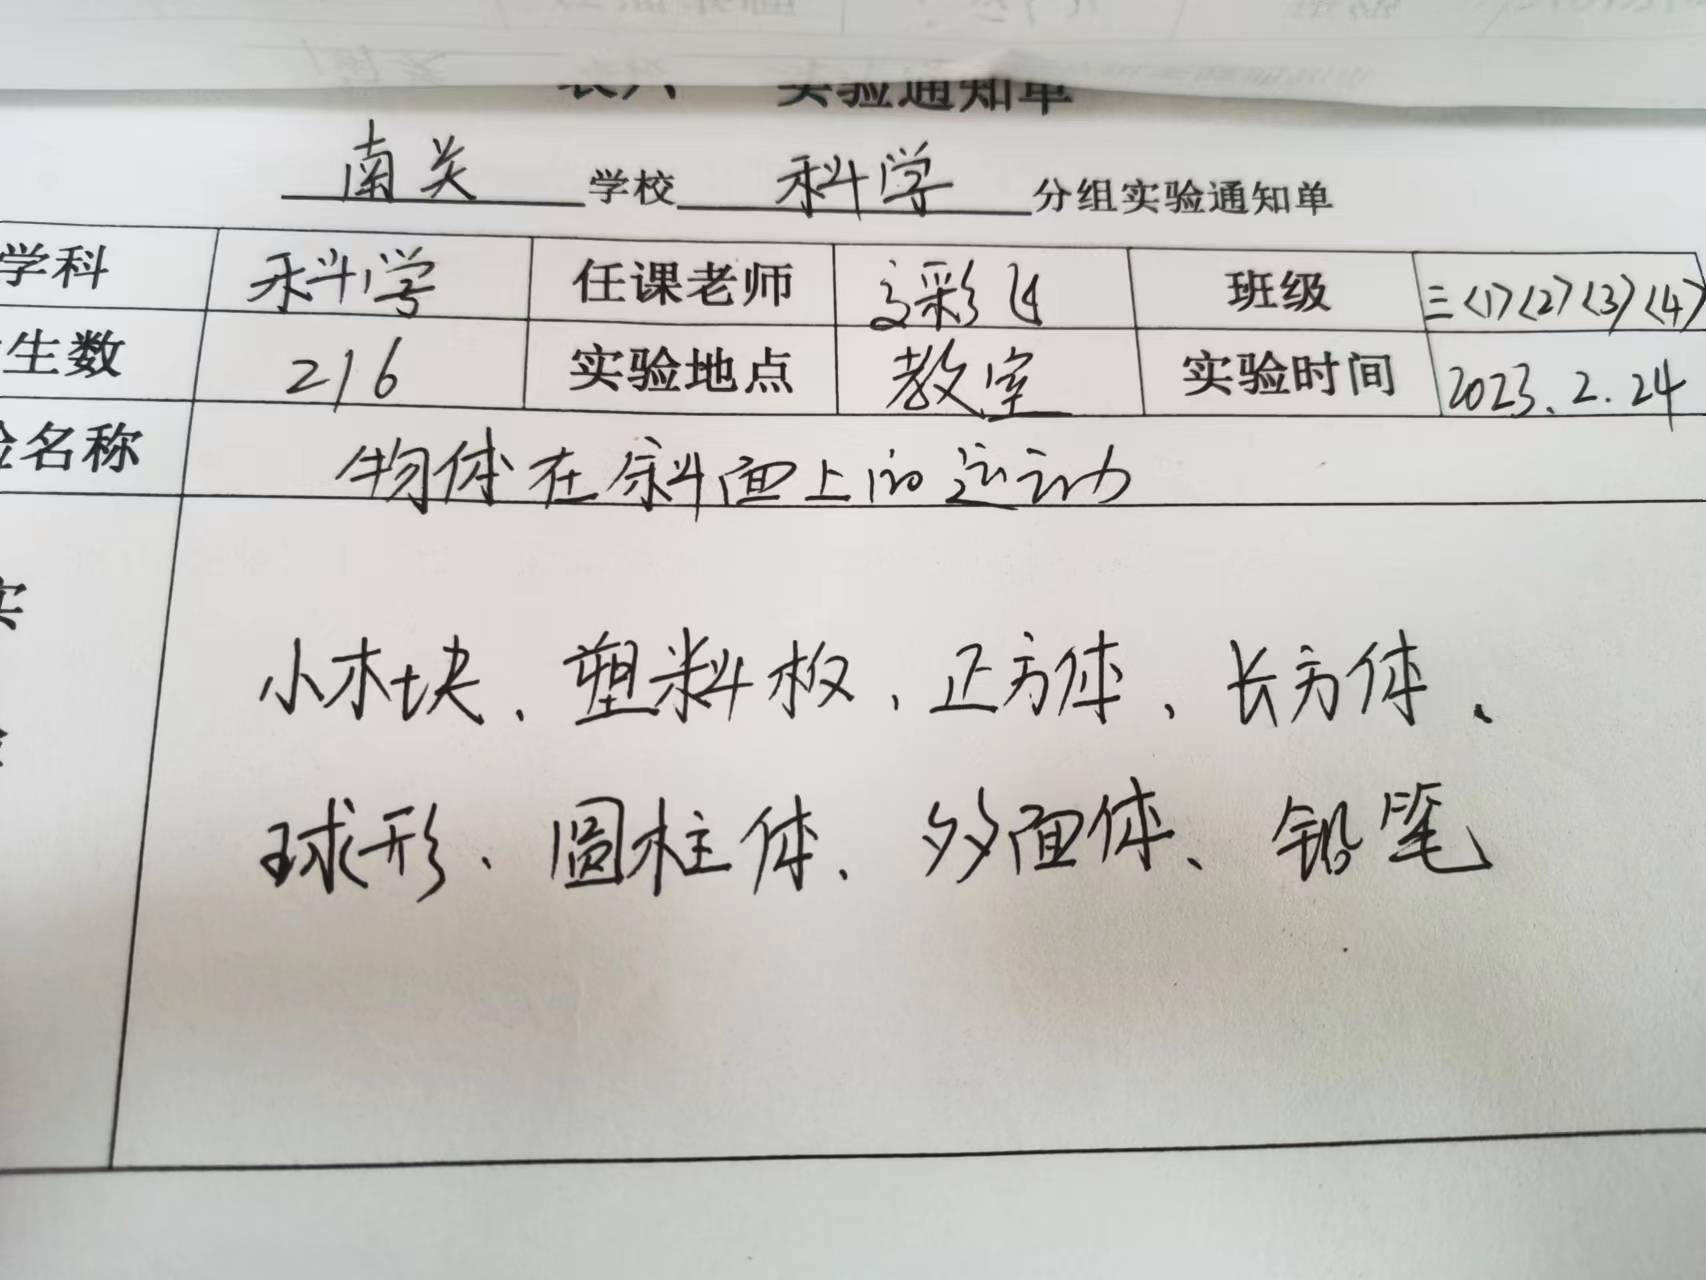 表六 实验通知单
南关 学校 科学 分组实验通知单
学科 科学 任课老师 文彩飞 班级 三〈1〉〈2〉〈3〉〈4〉
生数 216 实验地点 教室 实验时间 2023.2.24
验名称 物体在斜面上的运动
实
小木块、塑料板、正方体、长方体、
验
球形、圆柱体、多面体、铅笔